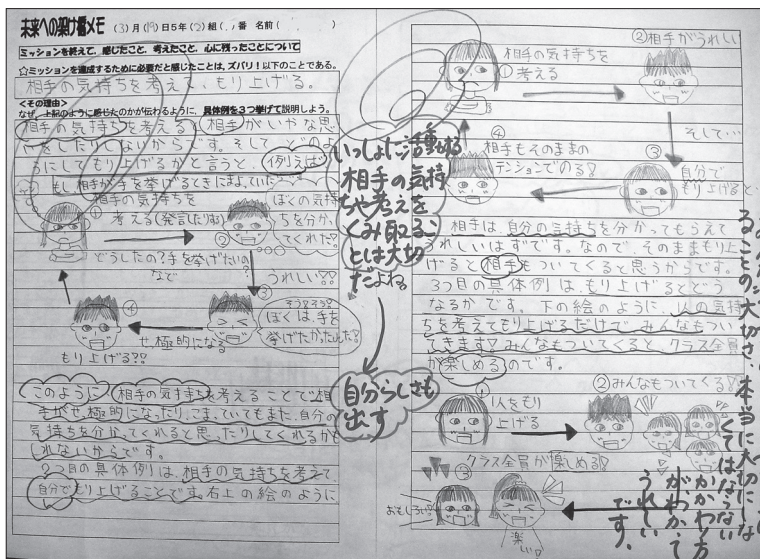 未来への架け橋メモ (3)月(19)日5年(2)組( )番 名前( )
ミッションを終えて、感じたこと、考えたこと、心に残ったことについて
☆ミッションを達成するために必要だと感じたことは、ズバリ！以下のことである。
相手の気持ちを考えて、もり上げる。
<その理由>
なぜ、上記のように感じたのかが伝わるように、具体例を3つ挙げて説明しよう。
相手の気持ちを考えると相手がいやな思
いをしたりしないからです。そして、どのよ
うにしてもり上げるかと言うと、例えば
もし、相手が手を挙げるときにまよっていたら、
①
相手の気持ちを
考える(発言したりする)
どうしたの?手を挙げたいの?
など
②
ぼくの気持
ちを分かっ
てくれた?
うれしい!!
③
そうそう!
ぼくは手を
挙げたかったんだ!
せっ極的になる
④
もり上げる!!
このように、相手の気持ちを考えることで、相
手がせっ極的になったり、こまっていてもまた、自分の
気持ちを分かってくれると思ったりしてくれるかも
しれないからです。
2つ目の具体例は、相手の気持ちを考えて
自分でもり上げることです。右上の絵のように
いっしょに活動する
相手の気持
ちや考えを
くみ取るこ
とは大切
だよね。
自分らしさも
出す
相手の気持ちを
①考える
②相手がうれしい
そして…
③
自分で
もり上げると、
④
相手もそのままの
テンションでのる!
相手は、自分の気持ちを分かってもらえて
うれしいはずです。なので、そのままもり上
げると相手もついてくると思うからです。
3つ目の具体例は、もり上げるとどう
なるかです。下の絵のように、1人の気持
ちを考えてもり上げるだけで、みんなもつい
てきます。みんなもついてくると、クラス全員
が楽しめるのです。
①
1人をもり
上げる
②みんなもついてくる!!
③
クラス全員が楽しめる!
おもしろい!
楽しい!
ることの大切さ、本当に大切にしな
くてはならない
かかわり方
がわかって
うれしい
です。